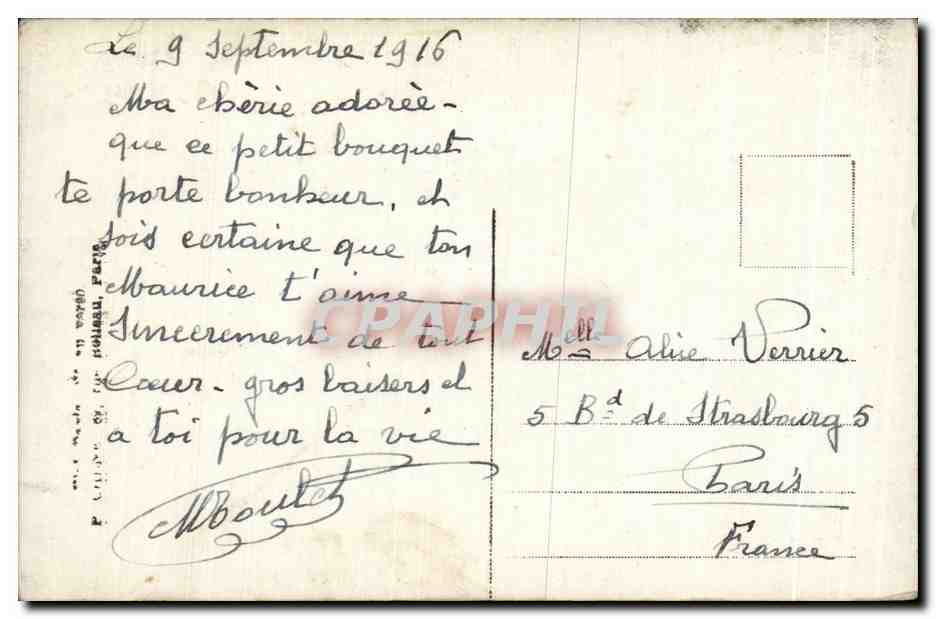 Le 9 Septembre 1916
Ma chèrie adorèe -
que ce petit bouquet
te porte bonheur, et
sois certaine que ton
Maurice t'aime
Sincerement de tout
Cœur - gros baisers et
a toi pour la vie
Melle Alice Verrier
5 Bd de Strasbourg 5
Paris
France
CPAPHIL
Paris